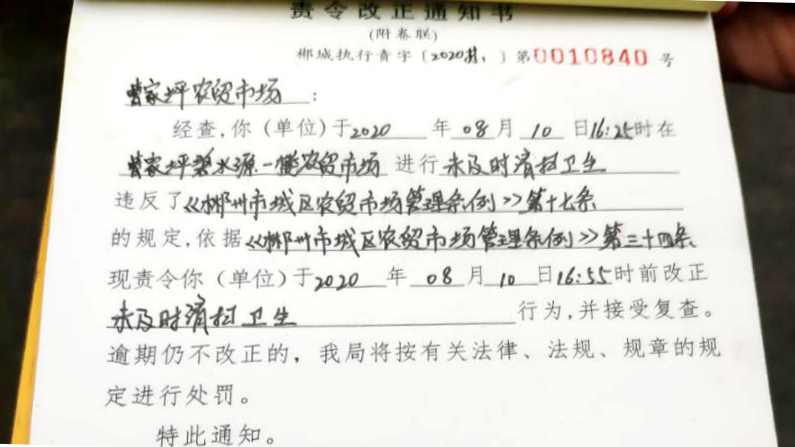 责令改正通知书
(附卷联)
郴城执行责字〔2020〕第0010840号
曹家坪农贸市场：
经查,你（单位）于2020年08月10日16:25时在
曹家坪碧水源一楼农贸市场进行未及时清扫卫生
违反了《郴州市城区农贸市场管理条例》第十七条
的规定,依据《郴州市城区农贸市场管理条例》第三十四条
现责令你（单位）于2020年08月10日16:55时前改正
未及时清扫卫生行为,并接受复查。
逾期仍不改正的，我局将按有关法律、法规、规章的规
定进行处罚。
特此通知。